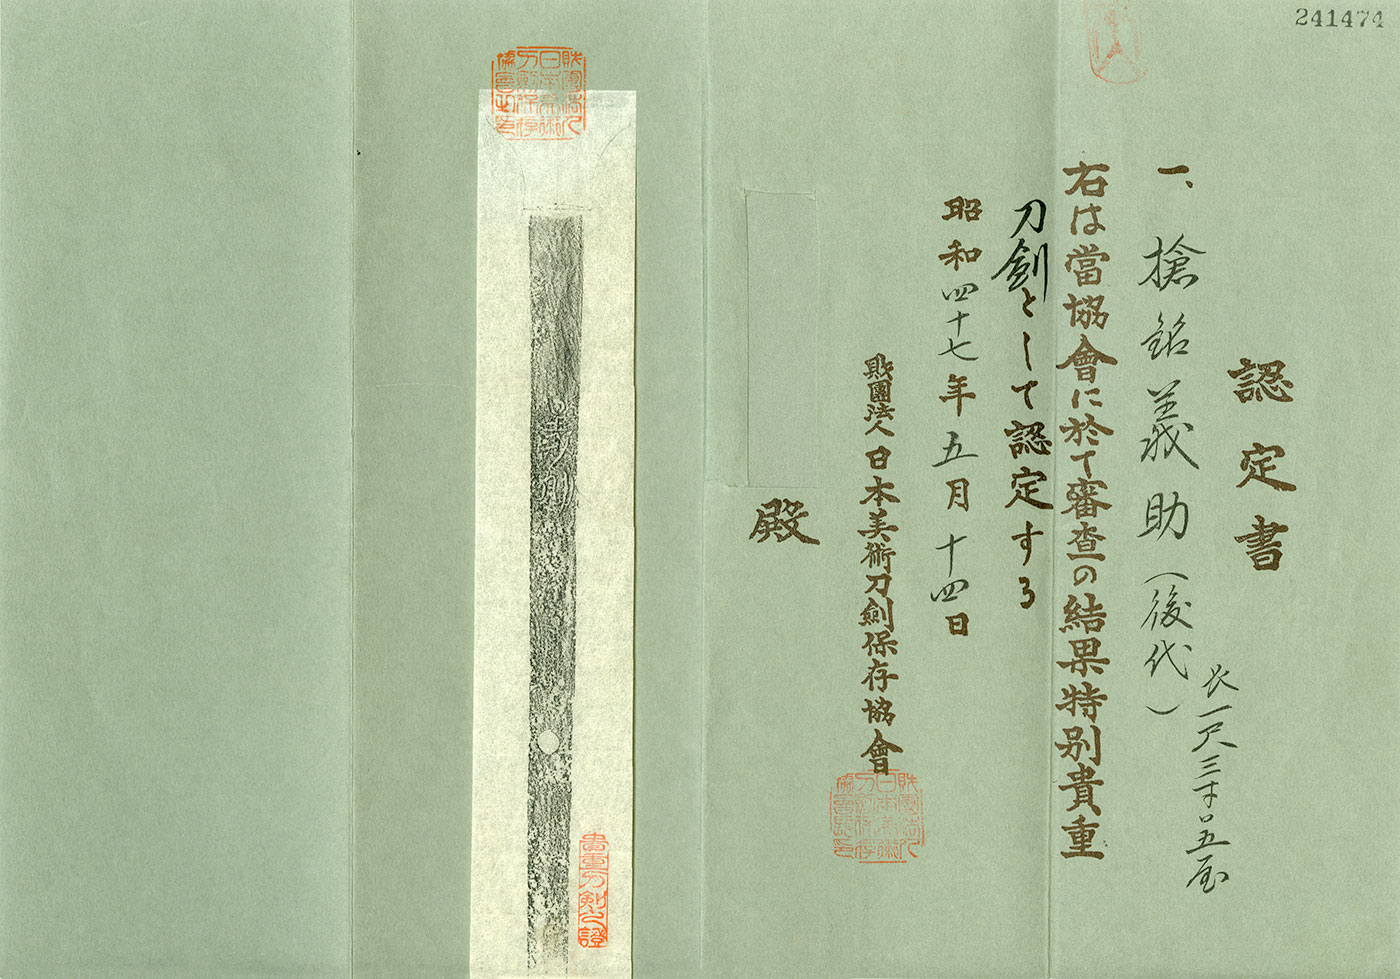 241474
認定書
一、槍 銘 義助(後代)
長一尺三寸五分
右は當協會に於て審査の結果特別貴重
刀劍として認定する
昭和四十七年五月十四日
財團法人日本美術刀劍保存協會
殿
義助
貴重刀劍之證